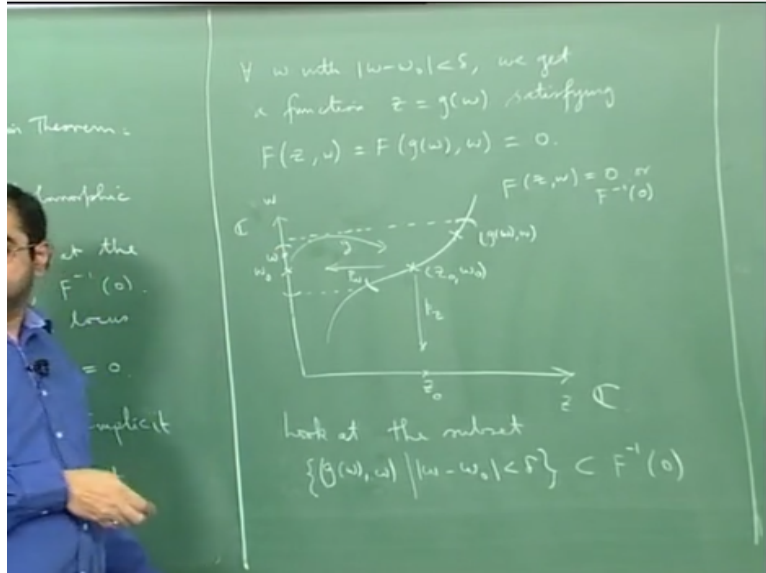 in Theorem:
lomorphic
at the
F⁻¹(0).
locus
= 0.
Implicit
∀ w with |w-w₀|<δ, we get
a function z = g(w) satisfying
F(z,w) = F(g(w),w) = 0.
F(z,w) = 0 or
F⁻¹(0)
w
ℂ
w
g
(g(w),w)
w₀
p_w
(z₀,w₀)
p_z
z₀
z ℂ
Look at the subset
{(g(w),w) | |w-w₀|<δ} ⊂ F⁻¹(0)